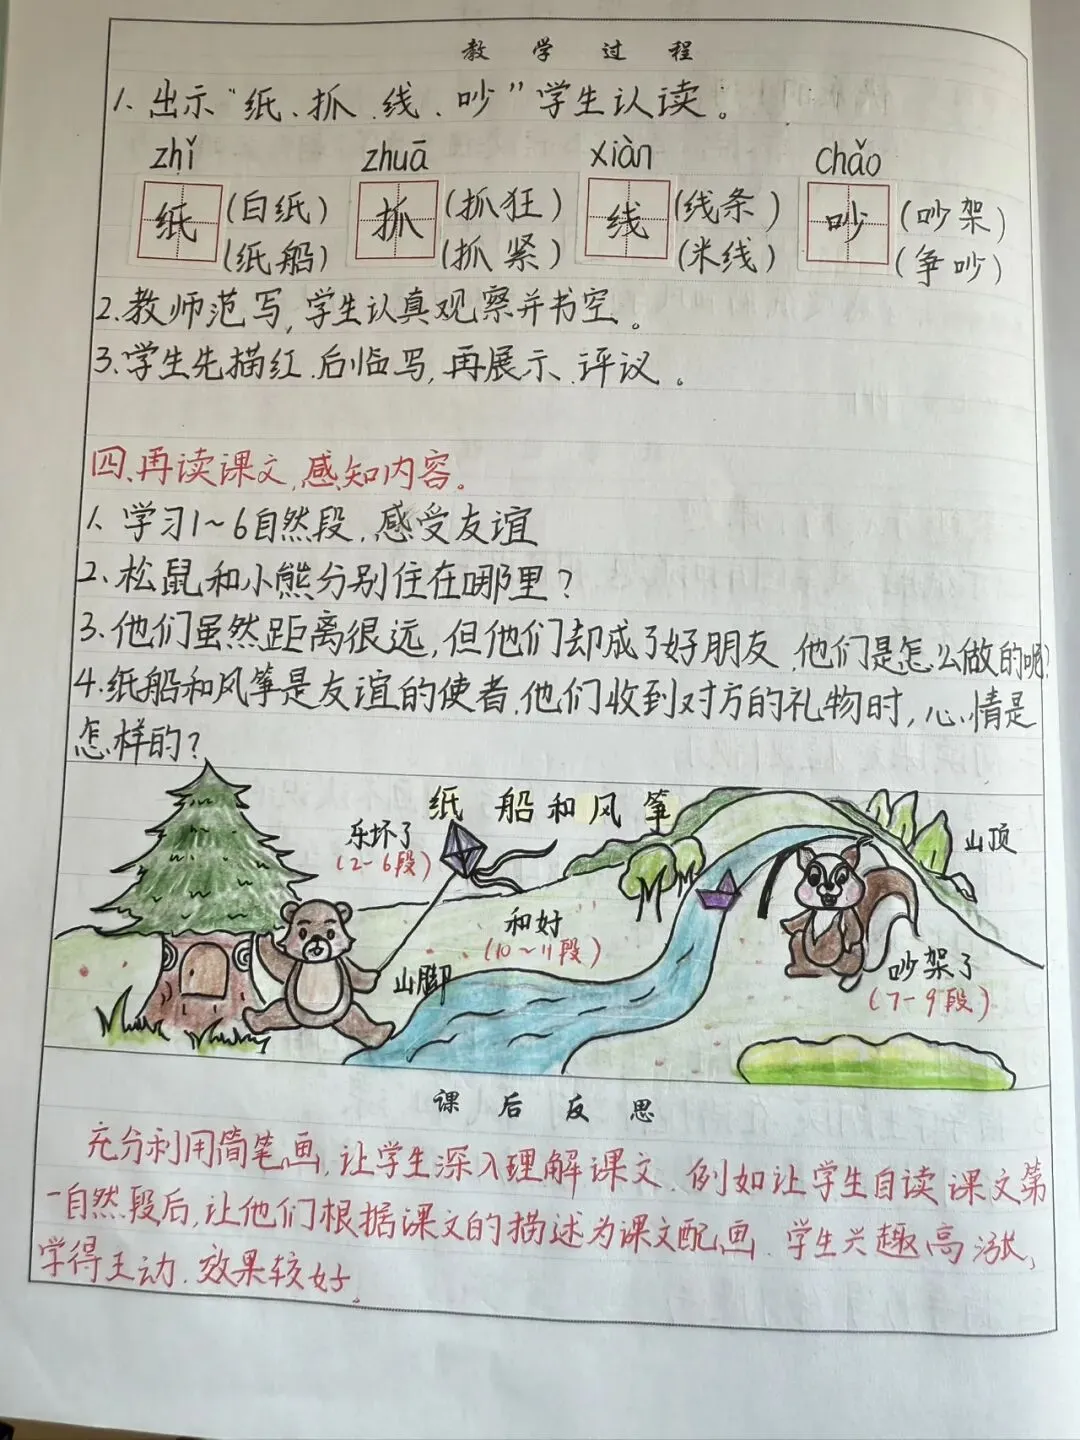 教学过程
1、出示“纸、抓、线、吵”学生认读。
zhǐ zhuā xiàn chǎo
纸(白纸) 抓(抓狂) 线(线条) 吵(吵架)
(纸船) (抓紧) (米线) (争吵)
2.教师范写,学生认真观察并书空。
3.学生先描红、后临写,再展示、评议。
四、再读课文,感知内容。
1、学习1~6自然段,感受友谊
2、松鼠和小熊分别住在哪里?
3、他们虽然距离很远,但他们却成了好朋友,他们是怎么做的呢?
4.纸船和风筝是友谊的使者,他们收到对方的礼物时,心情是
怎样的?
纸船和风筝
乐坏了
(2-6段)
山顶
和好
(10~11段)
山脚
吵架了
(7-9段)
课后反思
充分利用简笔画,让学生深入理解课文,例如让学生自读课文第
一自然段后,让他们根据课文的描述为课文配画,学生兴趣高涨,
学得主动,效果较好。